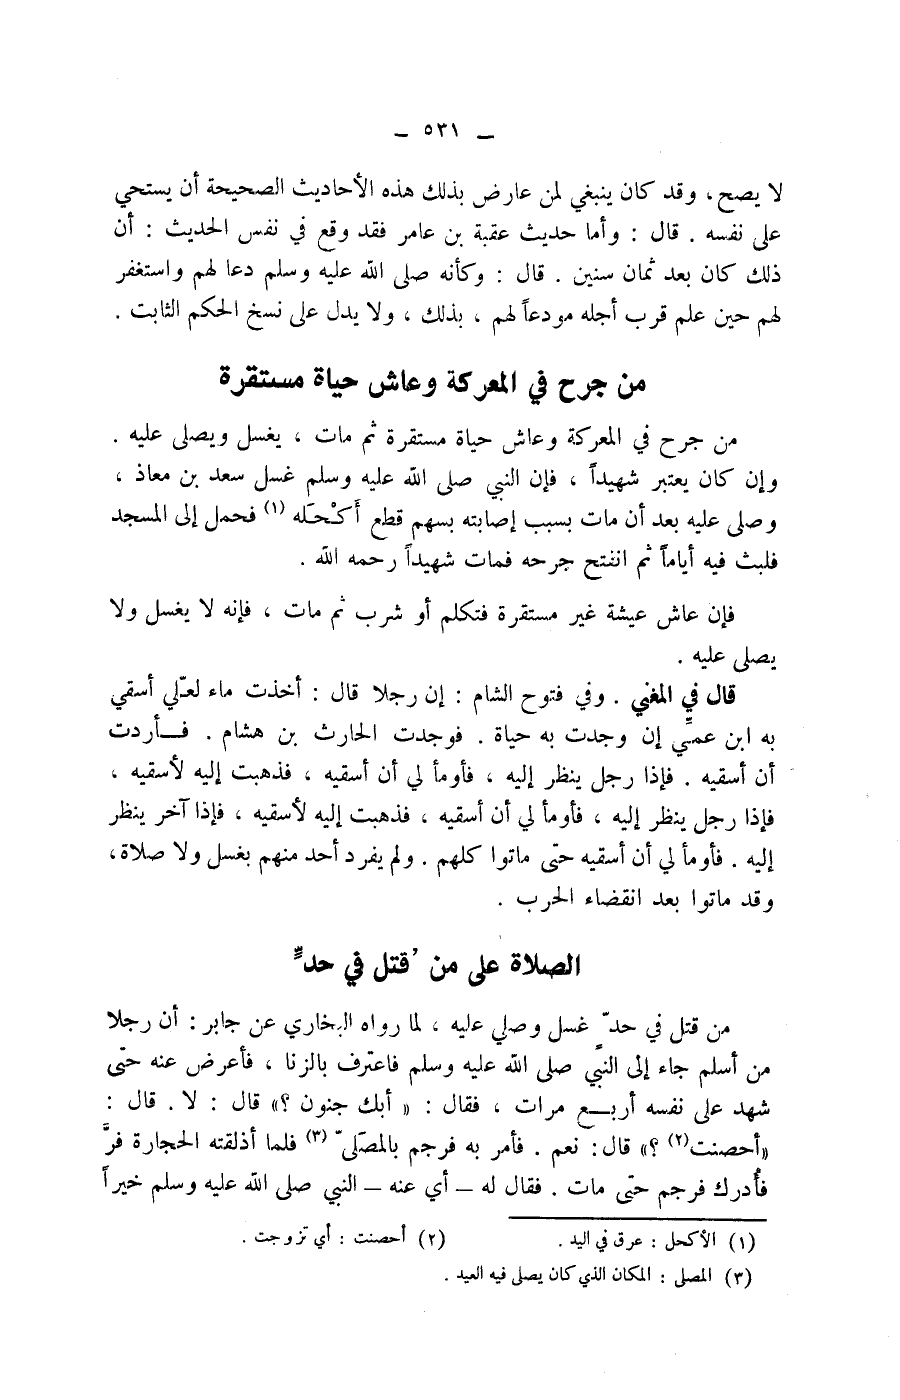 ـ ٥٣١ ـ
لا يصح ، وقد كان ينبغي لمن عارض بذلك هذه الأحاديث الصحيحة أن يستحي
على نفسه . قال : وأما حديث عقبة بن عامر فقد وقع في نفس الحديث : أن
ذلك كان بعد ثمان سنين . قال : وكأنه صلى الله عليه وسلم دعا لهم واستغفر
لهم حين علم قرب أجله مودعاً لهم ، بذلك ، ولا يدل على نسخ الحكم الثابت .
من جرح في المعركة وعاش حياة مستقرة
من جرح في المعركة وعاش حياة مستقرة ثم مات ، يغسل ويصلى عليه .
وإن كان يعتبر شهيداً ، فإن النبي صلى الله عليه وسلم غسل سعد بن معاذ ،
وصلى عليه بعد أن مات بسبب إصابته بسهم قطع أَكْحَله (١) فحمل إلى المسجد
فلبث فيه أياماً ثم انفتح جرحه فمات شهيداً رحمه الله .
فإن عاش عيشة غير مستقرة فتكلم أو شرب ثم مات ، فإنه لا يغسل ولا
يصلى عليه .
قال في المغني . وفي فتوح الشام : إن رجلا قال : أخذت ماء لعلّي أسقي
به ابن عمّي إن وجدت به حياة . فوجدت الحارث بن هشام . فـأردت
أن أسقيه . فإذا رجل ينظر إليه ، فأومأ لي أن أسقيه ، فذهبت إليه لأسقيه ،
فإذا رجل ينظر إليه ، فأومأ لي أن أسقيه ، فذهبت إليه لأسقيه ، فإذا آخر ينظر
إليه . فأومأ لي أن أسقيه حتى ماتوا كلهم . ولم يفرد أحد منهم بغسل ولا صلاة ،
وقد ماتوا بعد انقضاء الحرب .
الصلاة على من ُقتل في حدٍّ
من قتل في حدّ غسل وصلي عليه ، لما رواه البخاري عن جابر : أن رجلا
من أسلم جاء إلى النبّي صلى الله عليه وسلم فاعترف بالزنا ، فأعرض عنه حتى
شهد على نفسه أربـع مرات ، فقال : « أبك جنون ؟» قال : لا . قال :
«أحصنت(٢) ؟» قال: نعم . فأمر به فرجم بالمصلّى (٣) فلما أذلقته الحجارة فرَّ
فأُدرك فرجم حتى مات . فقال له ـ أي عنه ـ النبي صلى الله عليه وسلم خيراً
(١) الأكحل : عرق في اليد . (٢) أحصنت : أي تزوجت .
(٣) المصلى : المكان الذي كان يصلى فيه العيد .